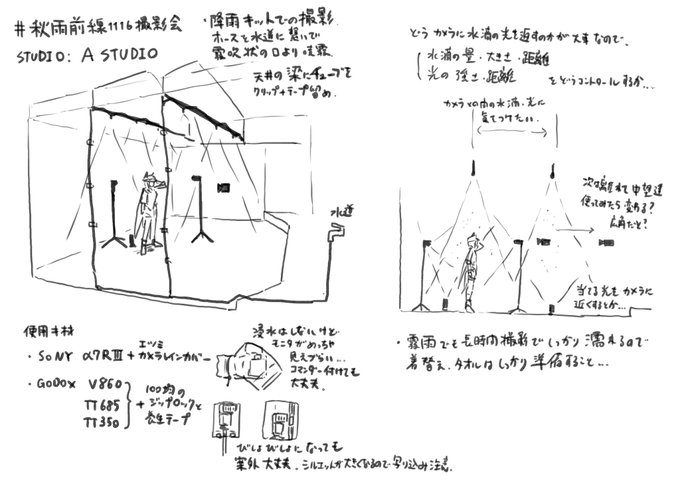 #秋雨前線1116撮影会
STUDIO: A STUDIO
・降雨キットでの撮影。
ホースと水道に繋いで
霧吹状の口より噴霧
天井の梁にチューブを
クリップ+テープ留め。
水道
使用キ材
・SONY α7RⅢ + エツミ
カメラレインカバー
浸水はしないけど
モニタがめっちゃ
見えづらい…
コマンダー付けても
大丈夫。
・GODOX V860
TT685
TT350
+ 100均の
ジップロックと
養生テープ
びしょびしょになっても
案外大丈夫。シルエットが大きくなるので写り込み注意。
どうカメラに水滴の光を返すのかが大事なので、
水滴の量・大きさ・距離
光の強さ・距離
をどうコントロールするか…
カメラと中の水滴・光に
気をつけたい。
次は離れて中望遠
使ってみたら変わる?
広角だと?
当てる光をカメラに
近くするとか…
・霧雨でも長時間撮影でしっかり濡れるので
着替え、タオルはしっかり準備すること…